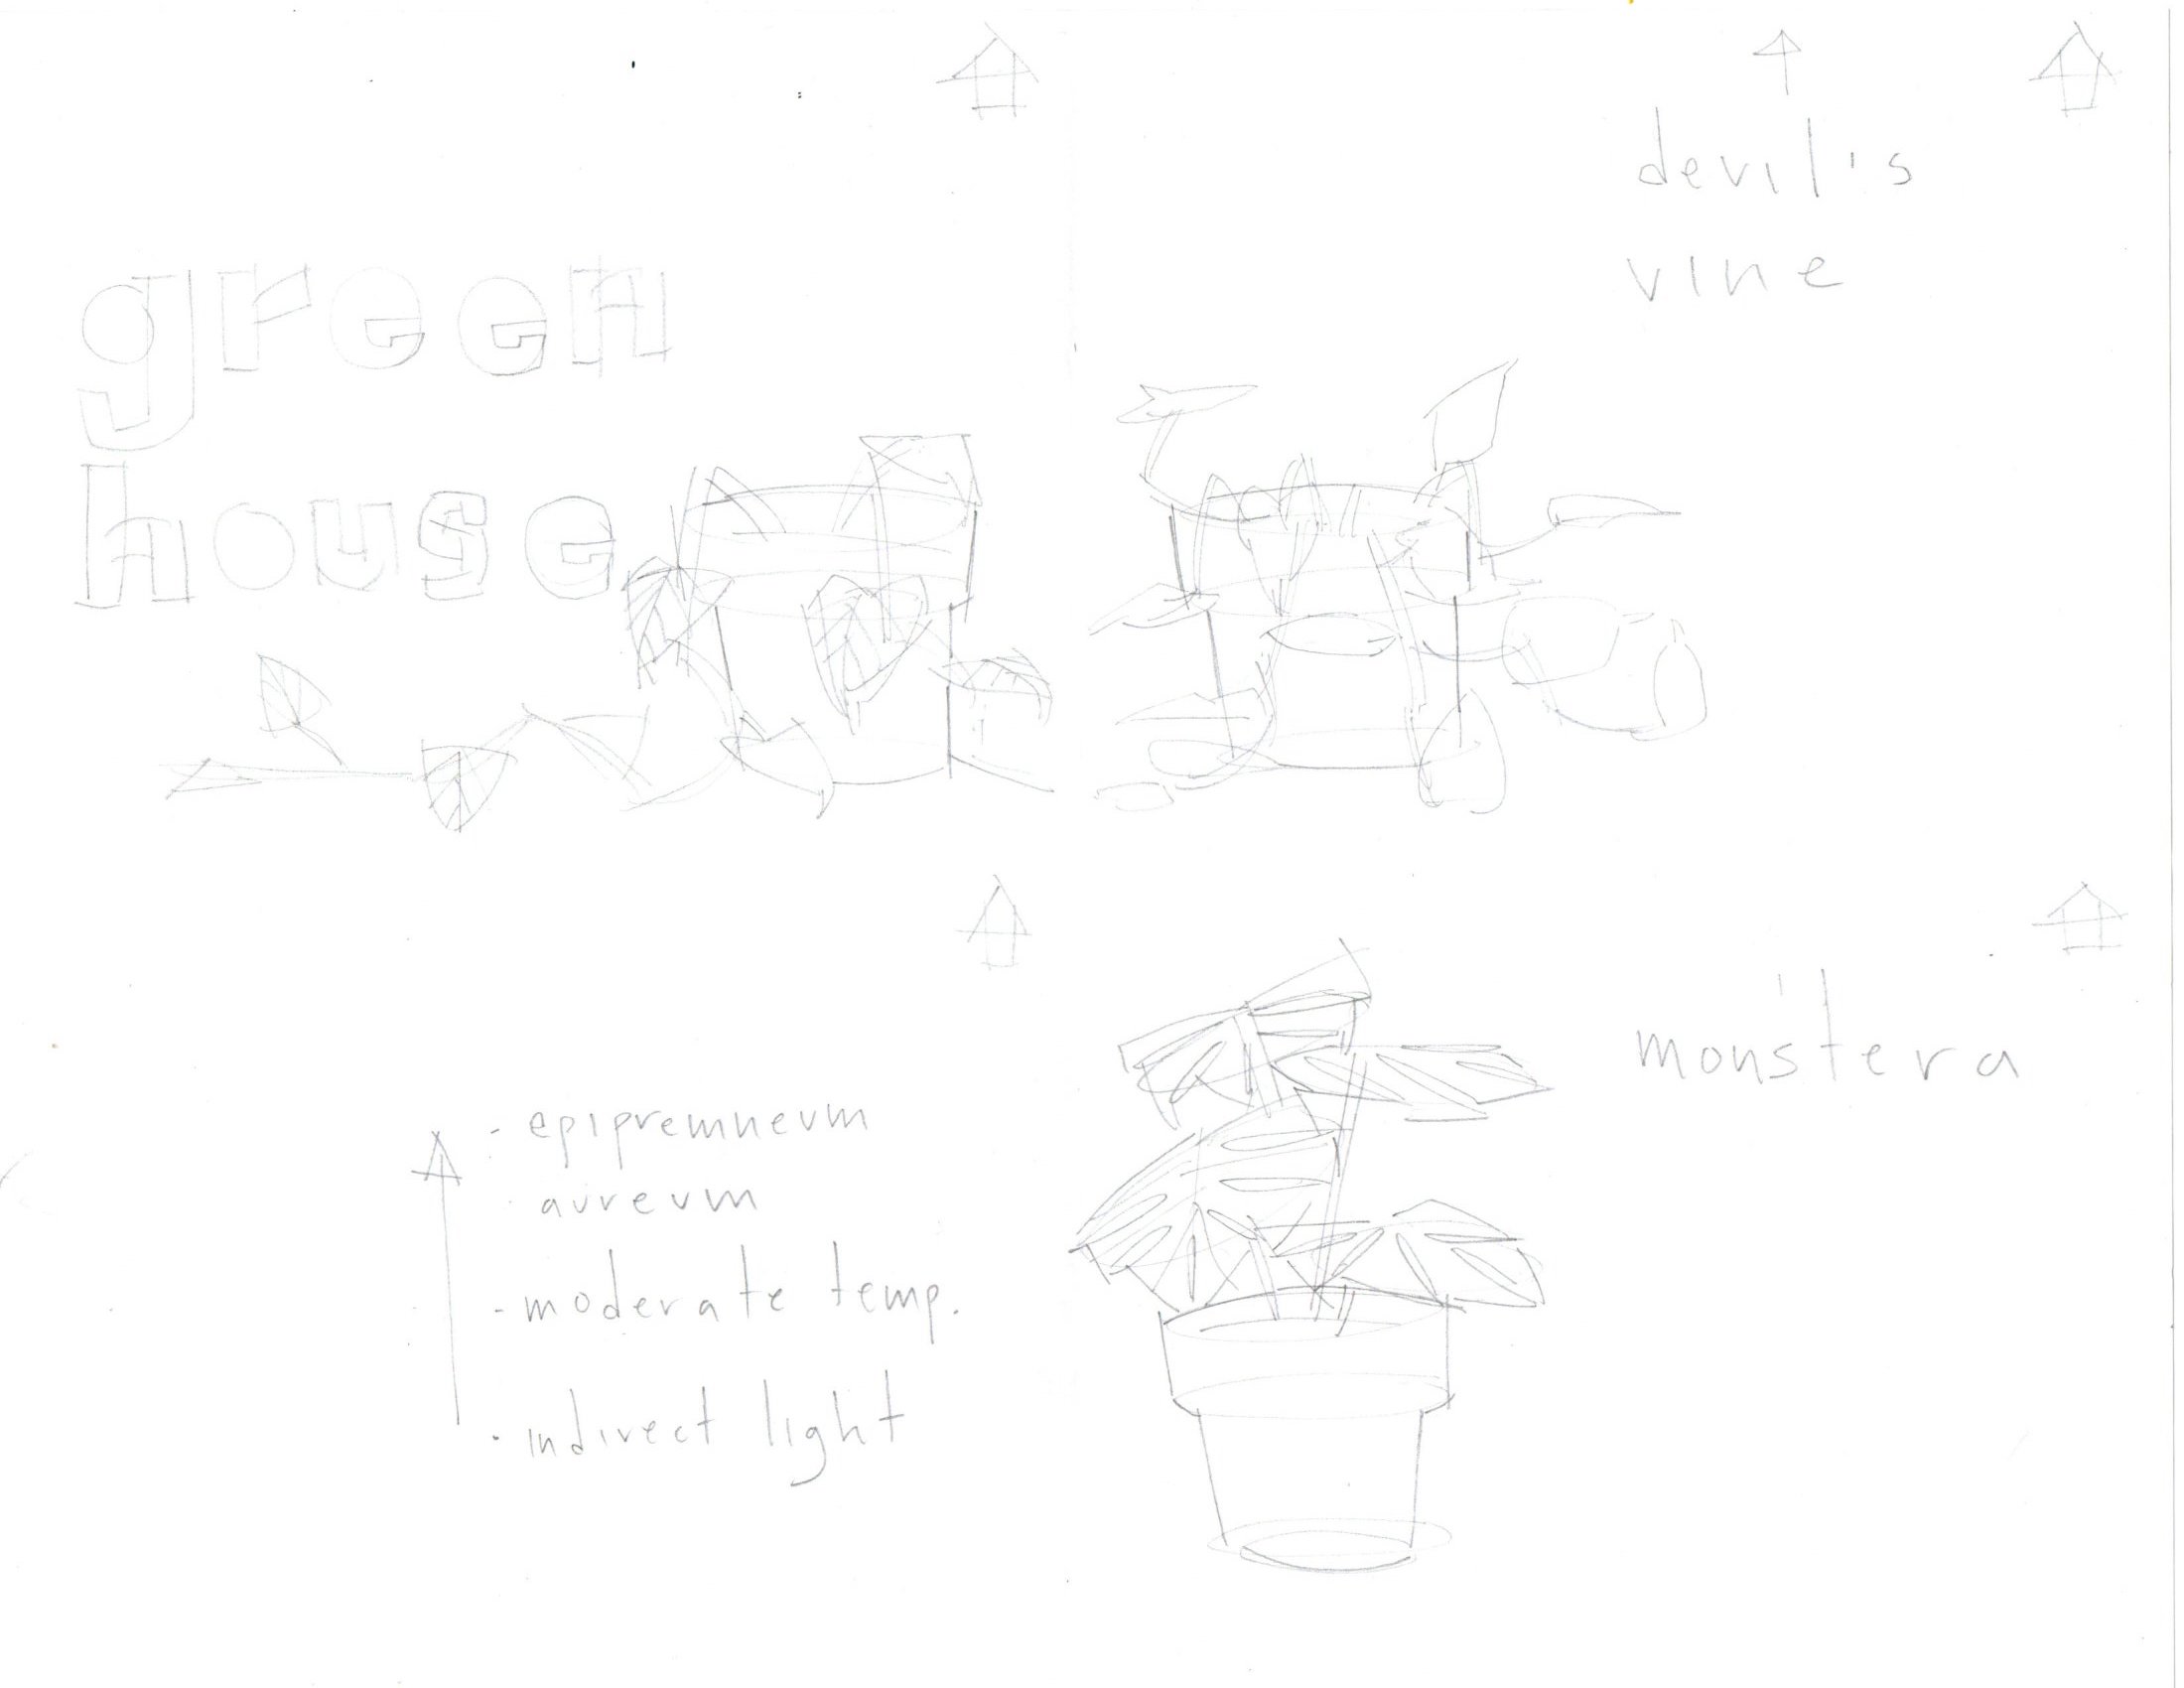 green
house
devil's
vine
- epipremneum
aureum
- moderate temp.
- indirect light
monstera